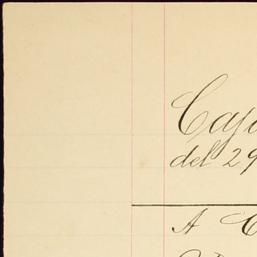 Caja
del 29
A C